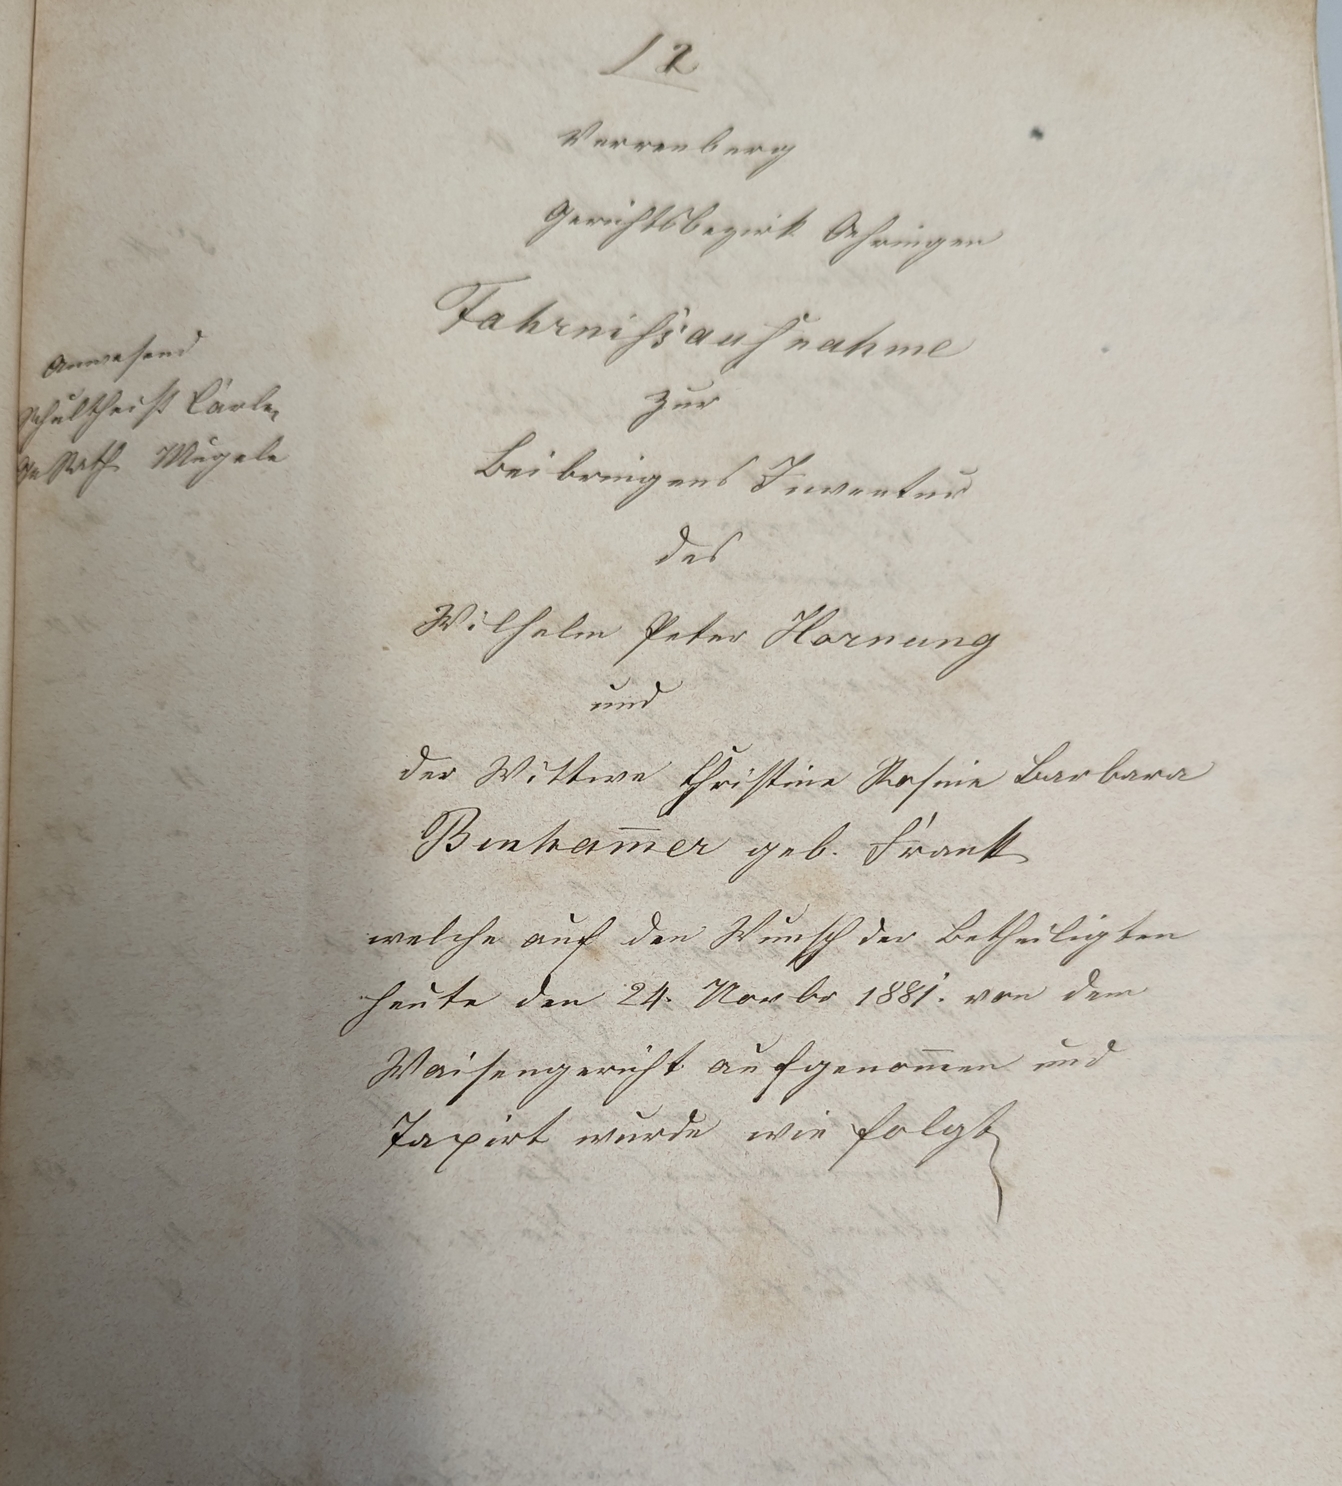 12
Verrenberg
Gerichtsbezirk Oehringen
Fahrnißaufnahme
zur
Beibringens Inventur
des
Wilhelm Peter Hornung
und
der Wittwe Christine Rosine Barbara
Binham̅er geb. Frank
welche auf den Wunsch der Betheiligten
heute den 24. Novbr 1881. von dem
Waisengericht aufgenom̅en und
Taxirt wurde wie folgt
Anwesend
Schultheiß
Ge Rath Mugele